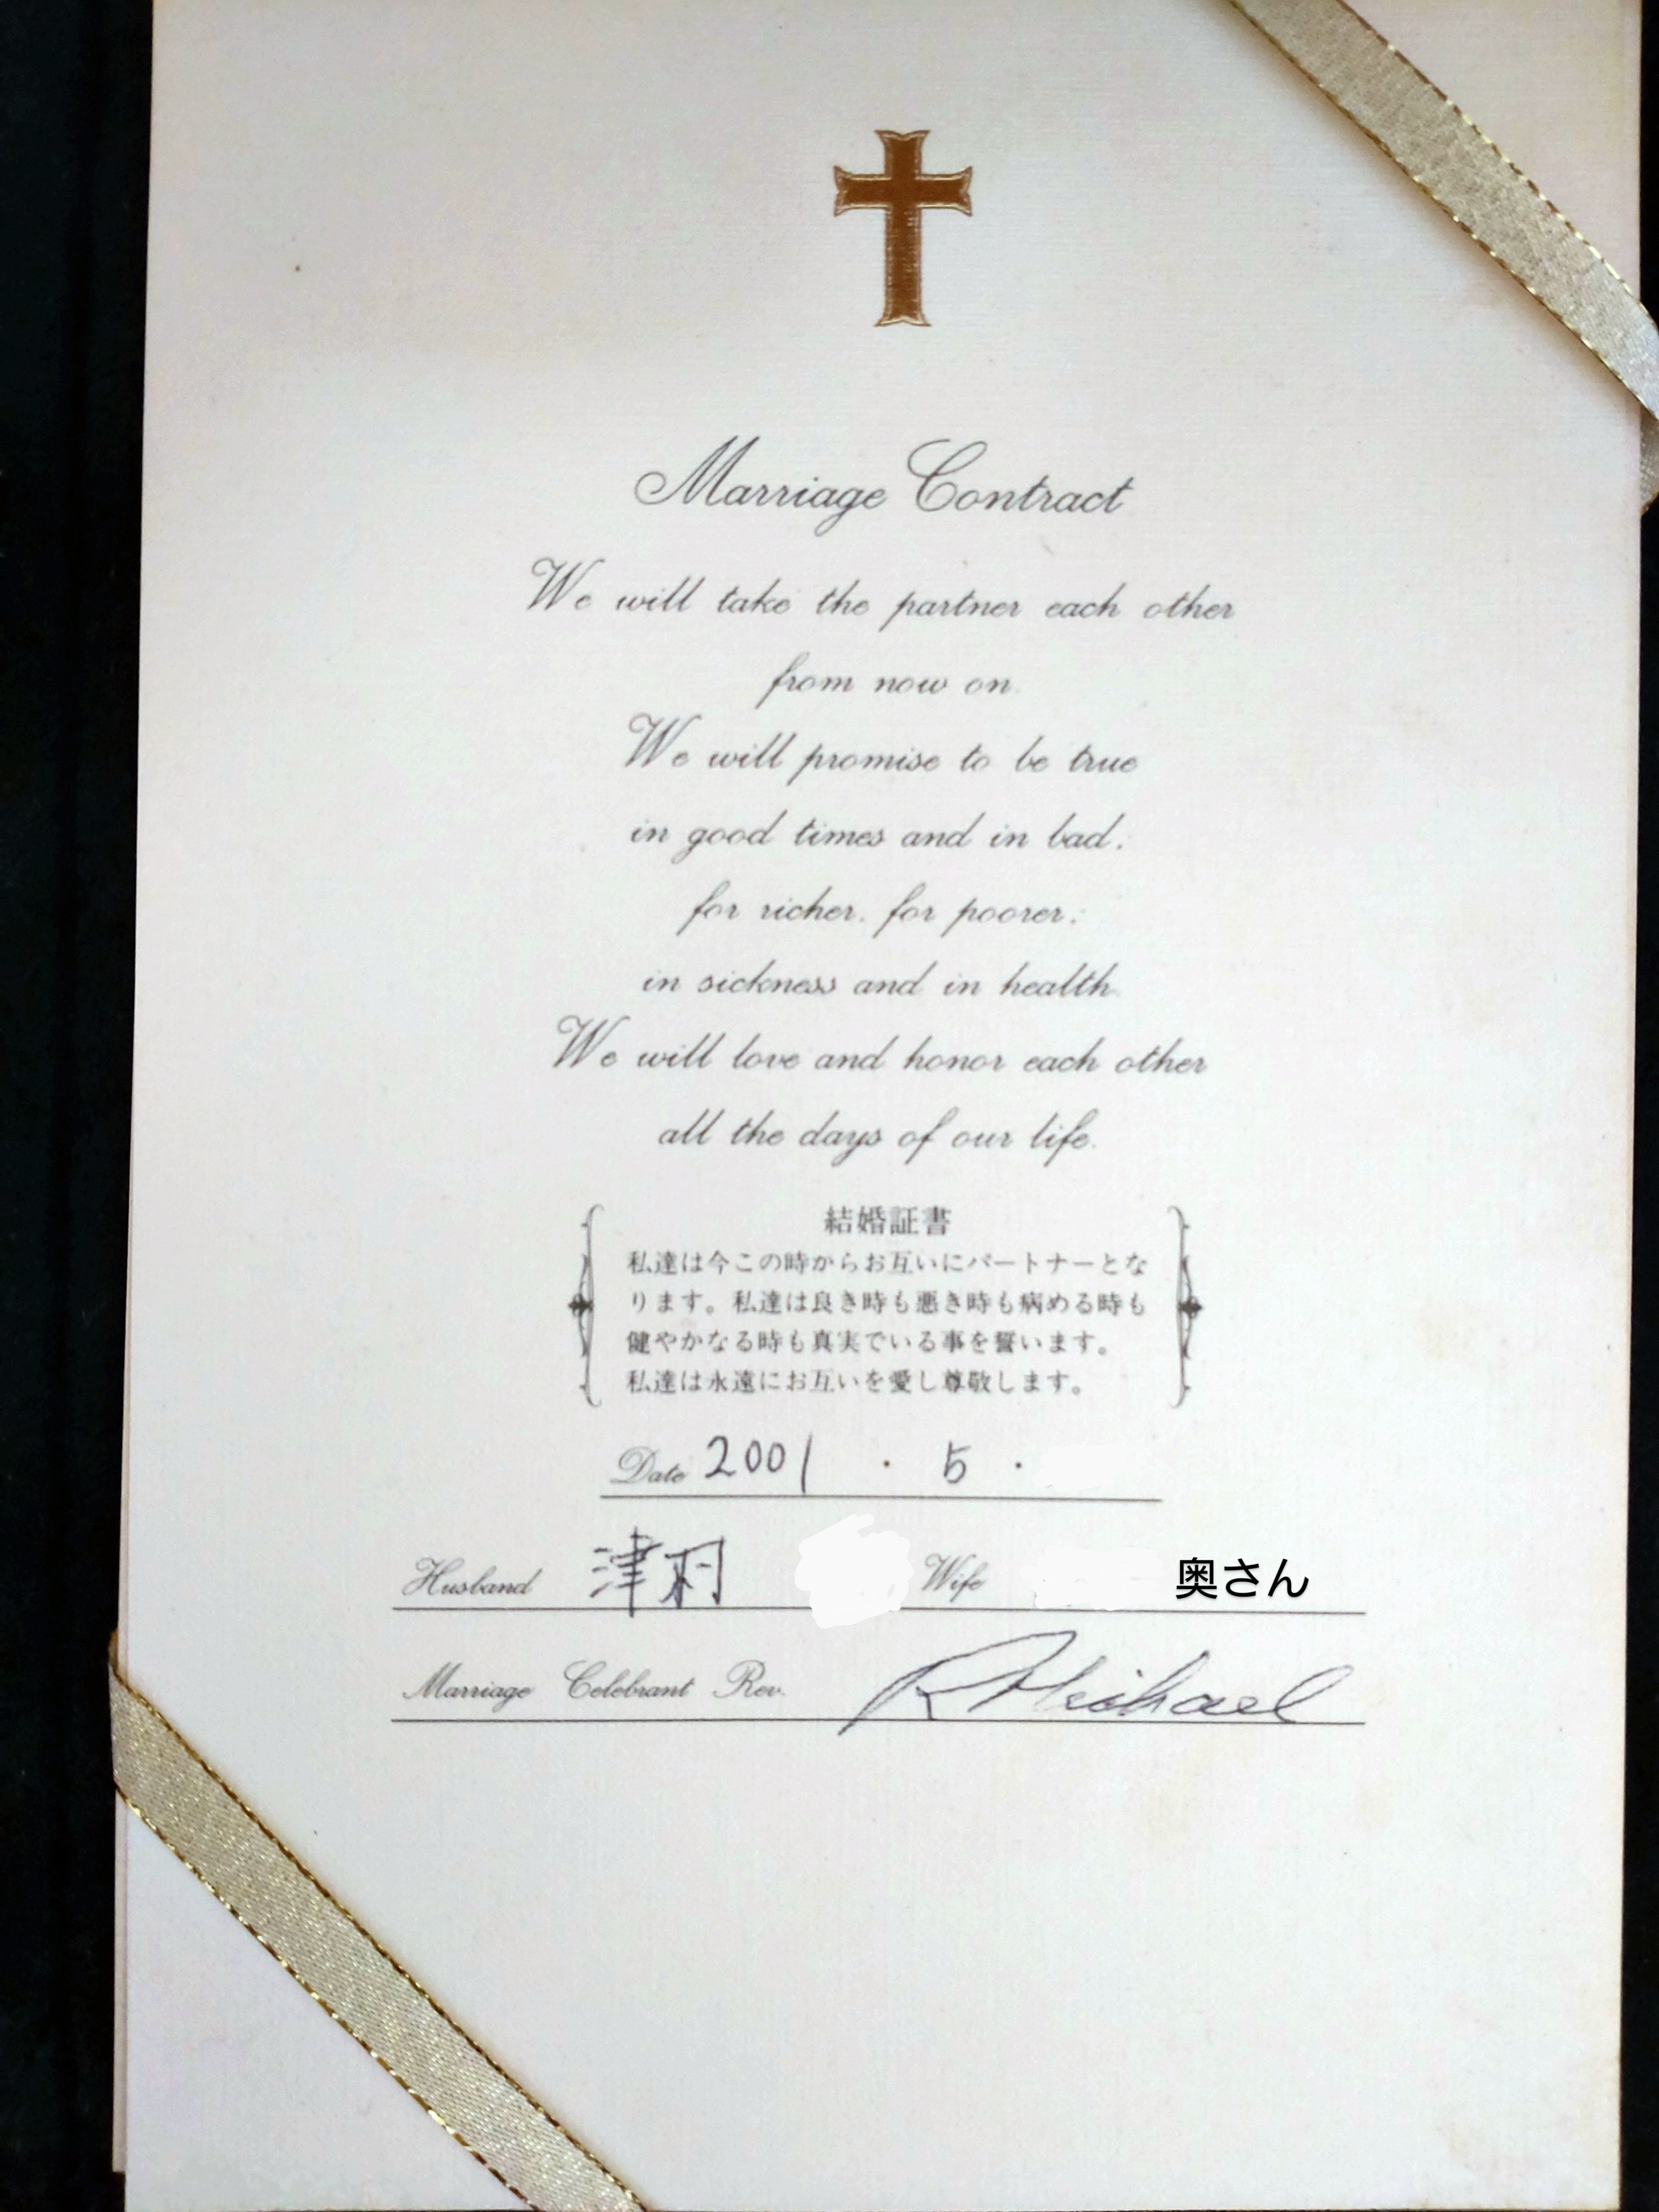 Marriage Contract
We will take the partner each other
from now on.
We will promise to be true
in good times and in bad:
for richer. for poorer:
in sickness and in health.
We will love and honor each other
all the days of our life.
結婚証書
私達は今この時からお互いにパートナーとな
ります。私達は良き時も悪き時も病める時も
健やかなる時も真実でいる事を誓います。
私達は永遠にお互いを愛し尊敬します。
Date 2001 . 5 .
Husband 津村 Wife 奥さん
Marriage Celebrant Rev. R Michael